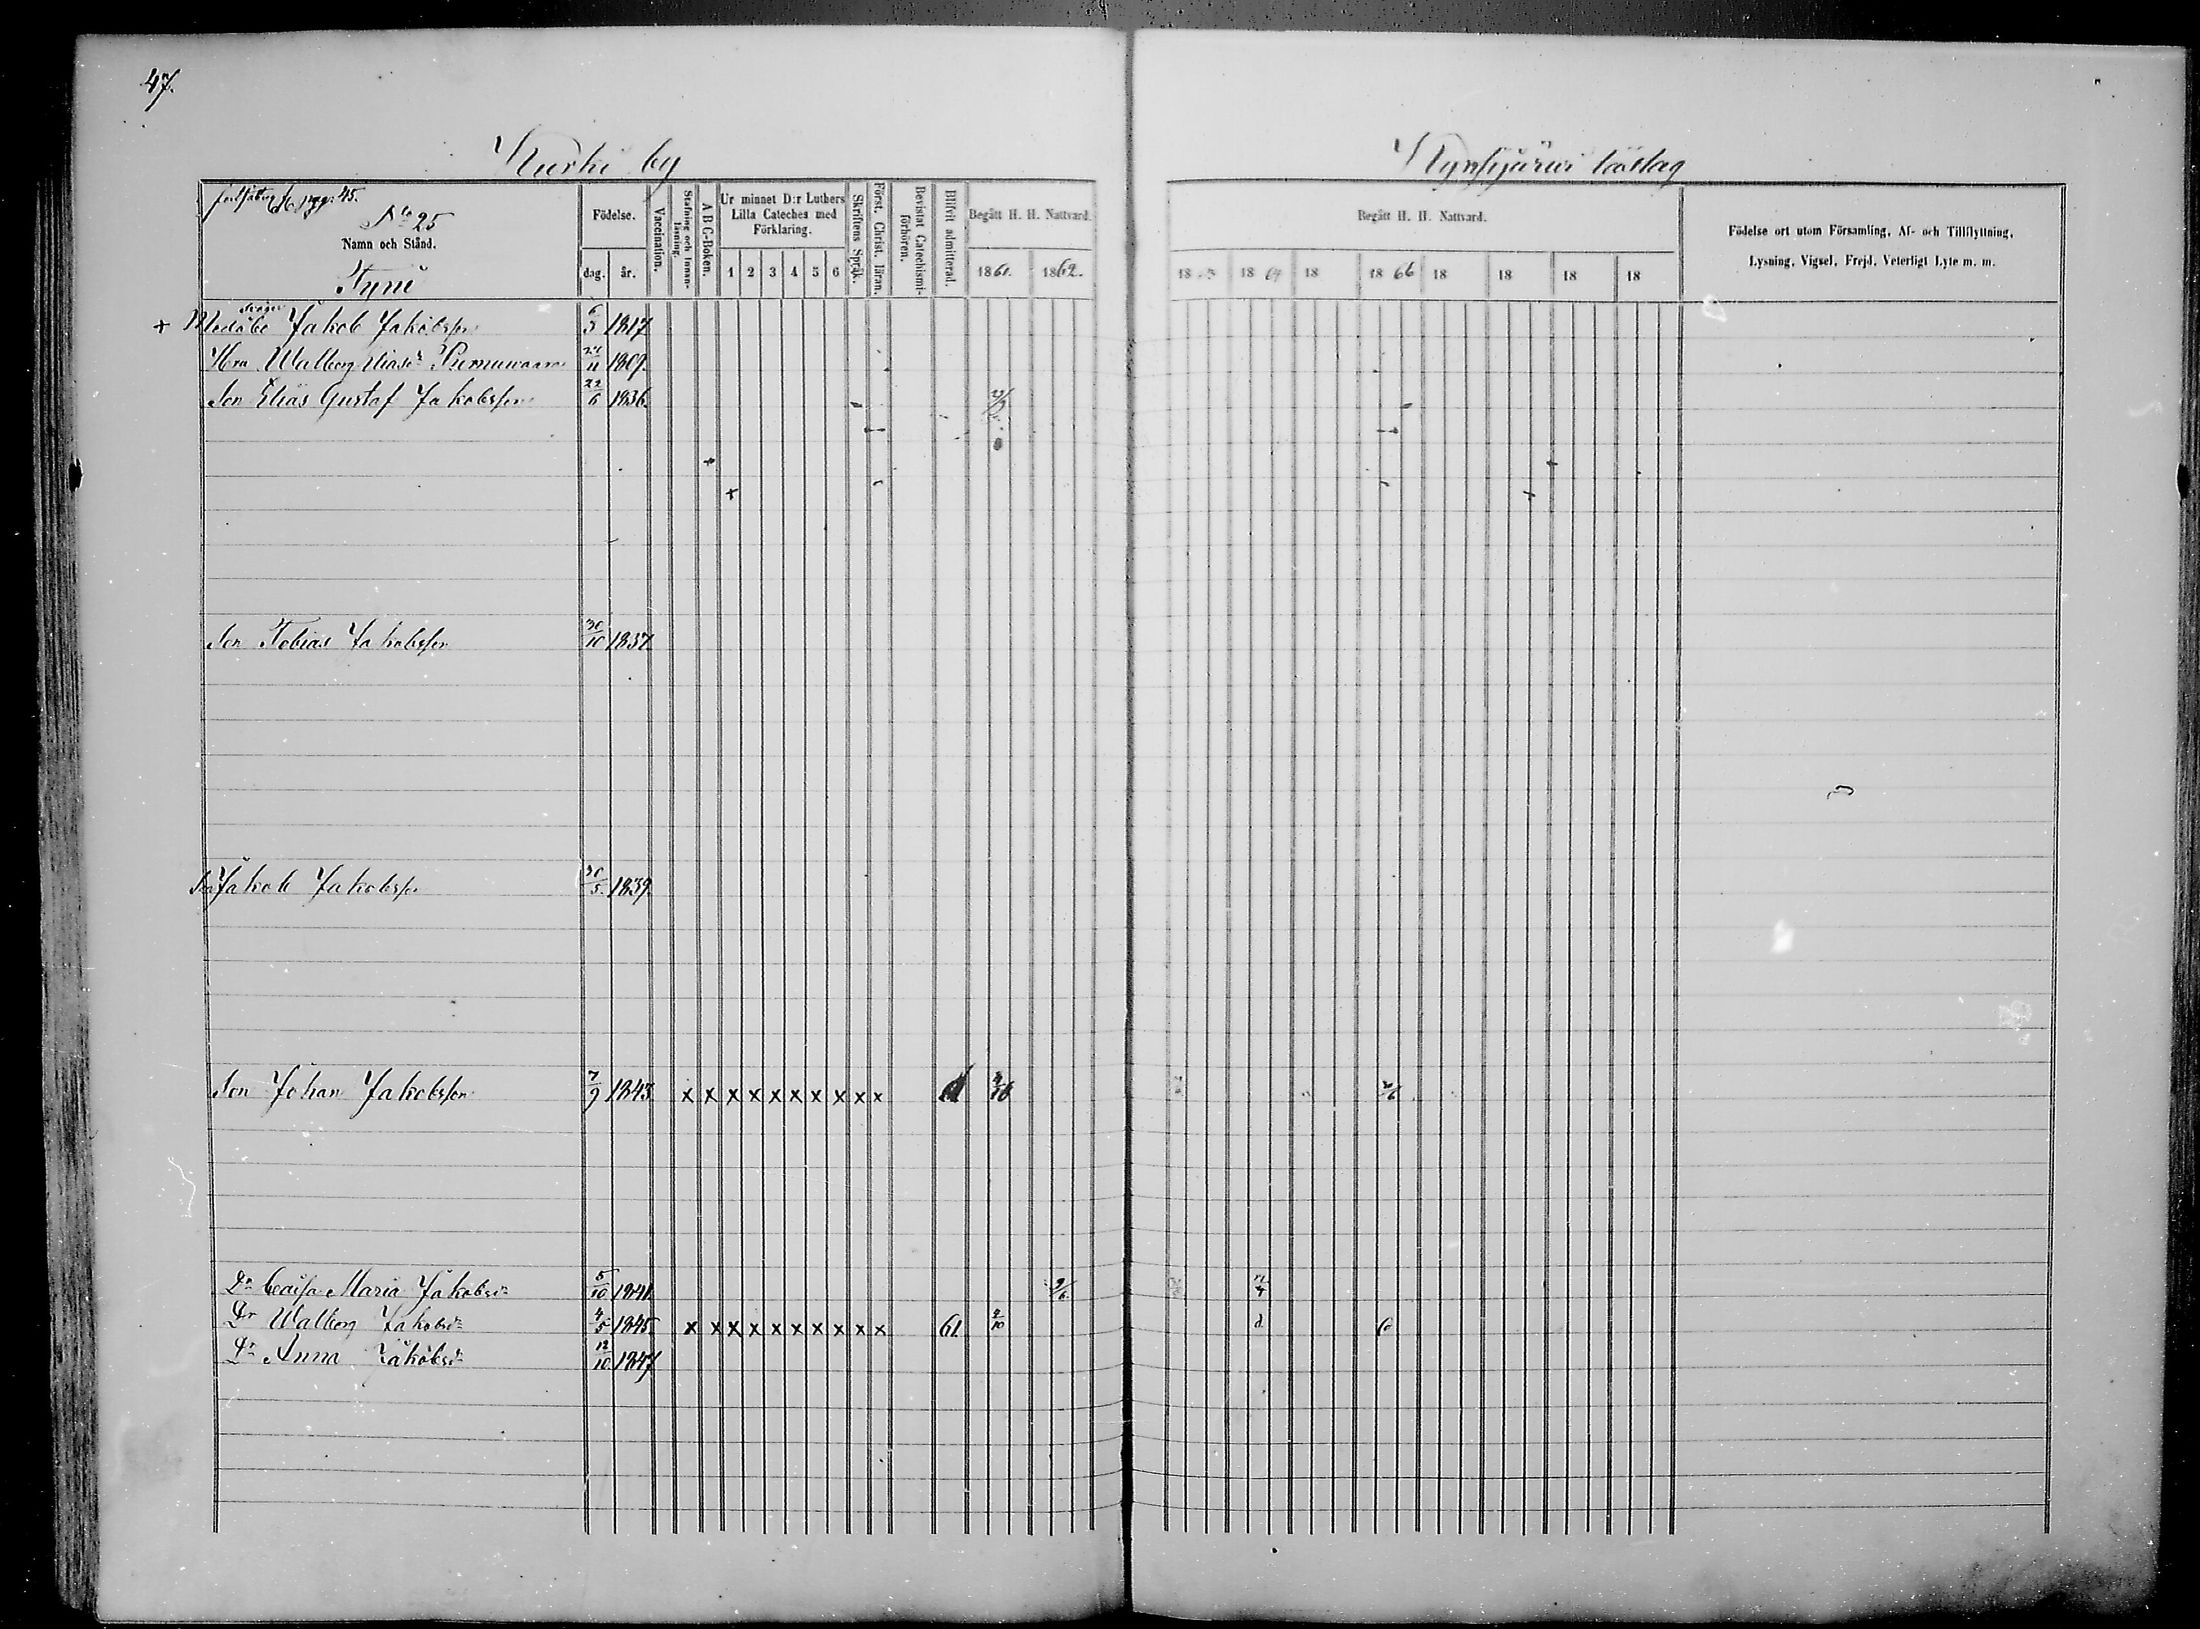 47.
Kurki by
pag: 45.
No 25
Namn och Stånd.
Tyni
Födelse.
dag.
år.
Vaccination.
Stafning och Innanläsning.
A B C-Boken.
Ur minnet D:r Luthers
Lilla Cateches med
Förklaring.
1 2 3 4 5 6
Skriftens Språk.
Först. Christ. läran.
Bevistat Catechismi-
förhören.
Blifvit admitterad.
Begått H. H. Nattvard.
1861. 1862.
Begått H. H. Nattvard.
18 3 18 64 18 18 66 18 18 18 18
Födelse ort utom Församling, Af- och Tillflyttning,
Lysning, Vigsel, Frejd, Veterligt Lyte m. m.
+ Medåbo Jakob Jakobsson 6/3 1817
Hru Walborg Eliasdr 24/11 1809.
Son Elias Gustaf Jakobsson 22/6 1836.
Son Tobias Jakobsson 30/10 1837
Son Jakob Jakobsson 30/5. 1839.
Son Johan Jakobsson 7/9 1843 x x x x x x x x x x
Dr Caisa Maria Jakobsdr 5/10 1841 9/6
Dr Walborg Jakobsdr 4/5 1845 x x x x x x x x x x 61 2/10 6
Dr Anna Jakobsdr 12/10 1847